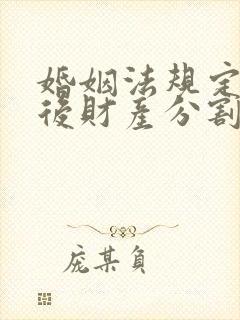 婚姻法規定
後財產分割
庞某負